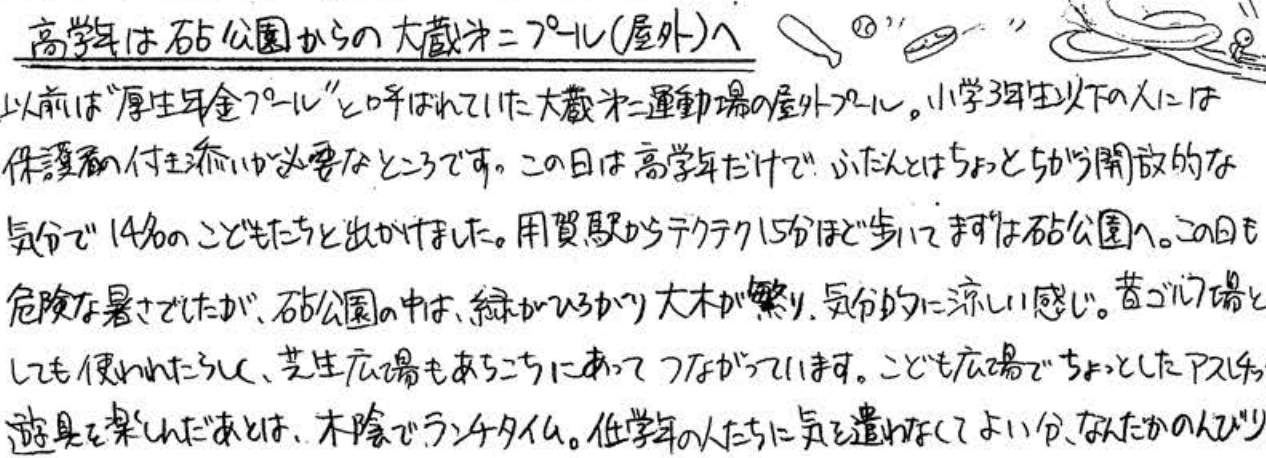 高学年は砧公園からの大蔵第二プール(屋外)へ
以前は"厚生年金プール"と呼ばれていた大蔵第二運動場の屋外プール。小学3年生以下の人には
保護者の付き添いが必要なところです。この日は高学年だけで、ふだんとはちょっとちがう開放的な
気分で14名のこどもたちと出かけました。用賀駅からテクテク15分ほど歩いてまずは砧公園へ。この日も
危険な暑さでしたが、砧公園の中は、緑がひろがり大木が繁り、気分的に涼しい感じ。昔ゴルフ場と
しても使われたらしく、芝生広場もあちこちにあってつながっています。こども広場でちょっとしたアスレチッ
遊具を楽しんだあとは、木陰でランチタイム。低学年の人たちに気を遣わなくてよい分、なんだかのんびり